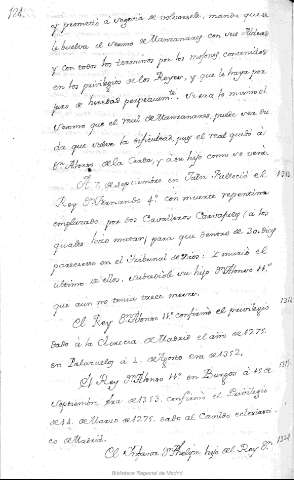 124.
y prometió a Segovia de volversele, manda que se
le buelva el Sesmo de Manzanares con sus Aldeas
y con todos los terminos por los mojones contenidos
en los privilegios de los Reyes, y que le haya por
juro de heredad perpetuam.te
Sesmo que el Real de Manzanares, pudo ser
da que sobre la dificultad, pues el Real quitó a
Dn Alonso de la Cerda, y a su hijo como se verá.
A 7. de Septiembre en Jaén falleció el 1312
Rey Dn Fernando 4º con muerte repentina
emplazado por dos Cavalleros Carvajales (a los
quales hizo matar) para que dentro de 30. dias
pareciese en el Tribunal de Dios: I murió el
ultimo de ellos, subcedióle su hijo Dn Alonso 11.º
que aun no tenia trece meses.
El Rey Dn Alonso 11º confirmó el privilegio 1314
dado a la Clerecia de Madrid el año de 1275.
en Palazuelos a 4. de Agosto era de 1352.
El Rey Dn Alonso 11º en Burgos a 12 de 1315
Septiembre era de 1353. confirmó el Privilegio
de 14. de Marzo de 1275. dado al Cavildo eclesiasti-
co de Madrid.
El Infante Dn Phelipe hijo del Rey Dn
Biblioteca Regional de Madrid